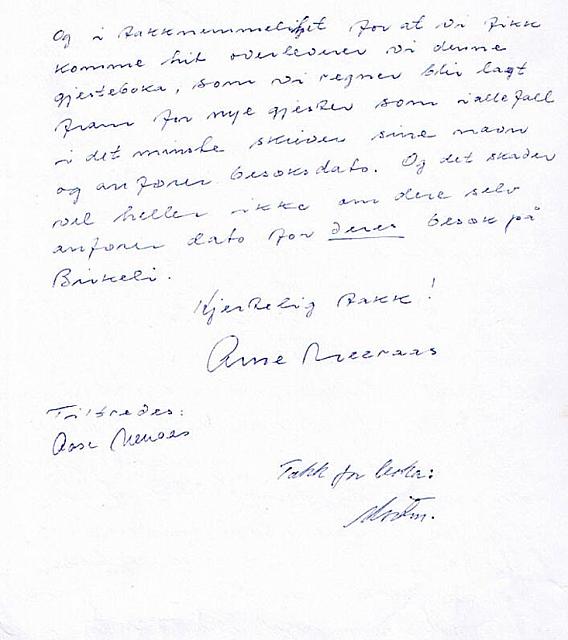 Og i takknemmelighet for at vi fikk
komme hit overleverer vi denne
gjesteboka, som vi regner blir lagt
fram for nye gjester som iallefall
i det minste skriver sine navn
og anfører besøksdato. Og det skader
vel heller ikke om dere selv
anfører dato for deres besøk på
Birkeli.
Hjertelig takk!
Arne
Tiltredes:
Takk for boka: